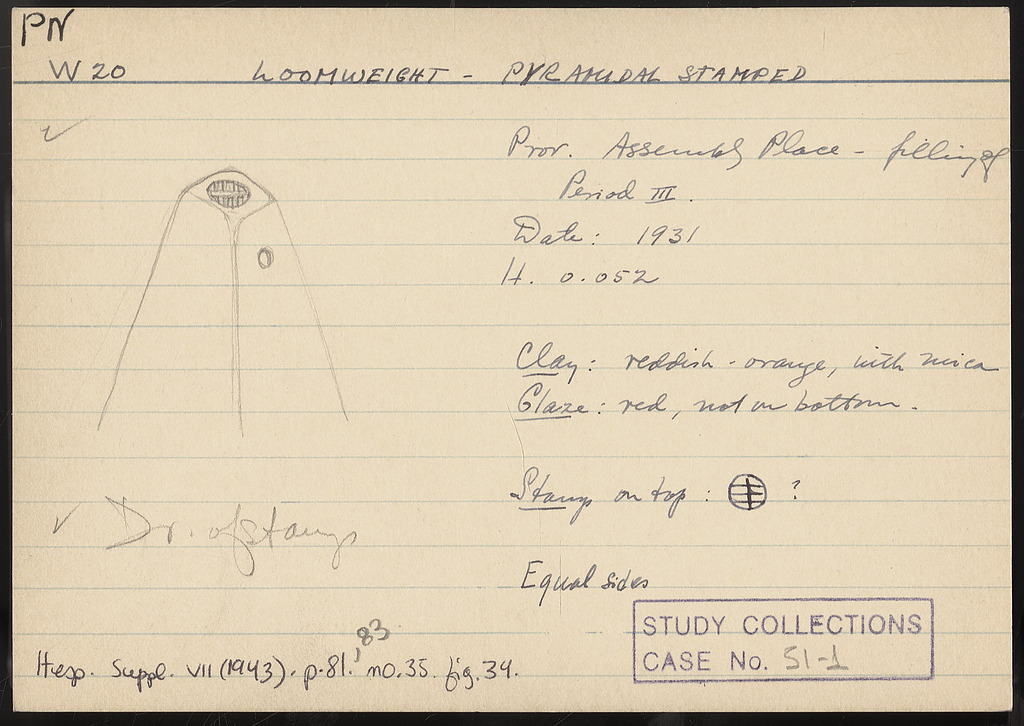 PN
W 20 LOOMWEIGHT - PYRAMIDAL STAMPED
Prov. Assembly Place - filling of
Period III.
Date: 1931
H. 0.052
Clay: reddish-orange, with mica
Glaze: red, not on bottom.
Stamp on top: ?
Dr. of stamp
Equal sides
STUDY COLLECTIONS
CASE No. SI-1
Hesp. Suppl. VII (1943). p. 81, 83 no. 35. fig. 34.